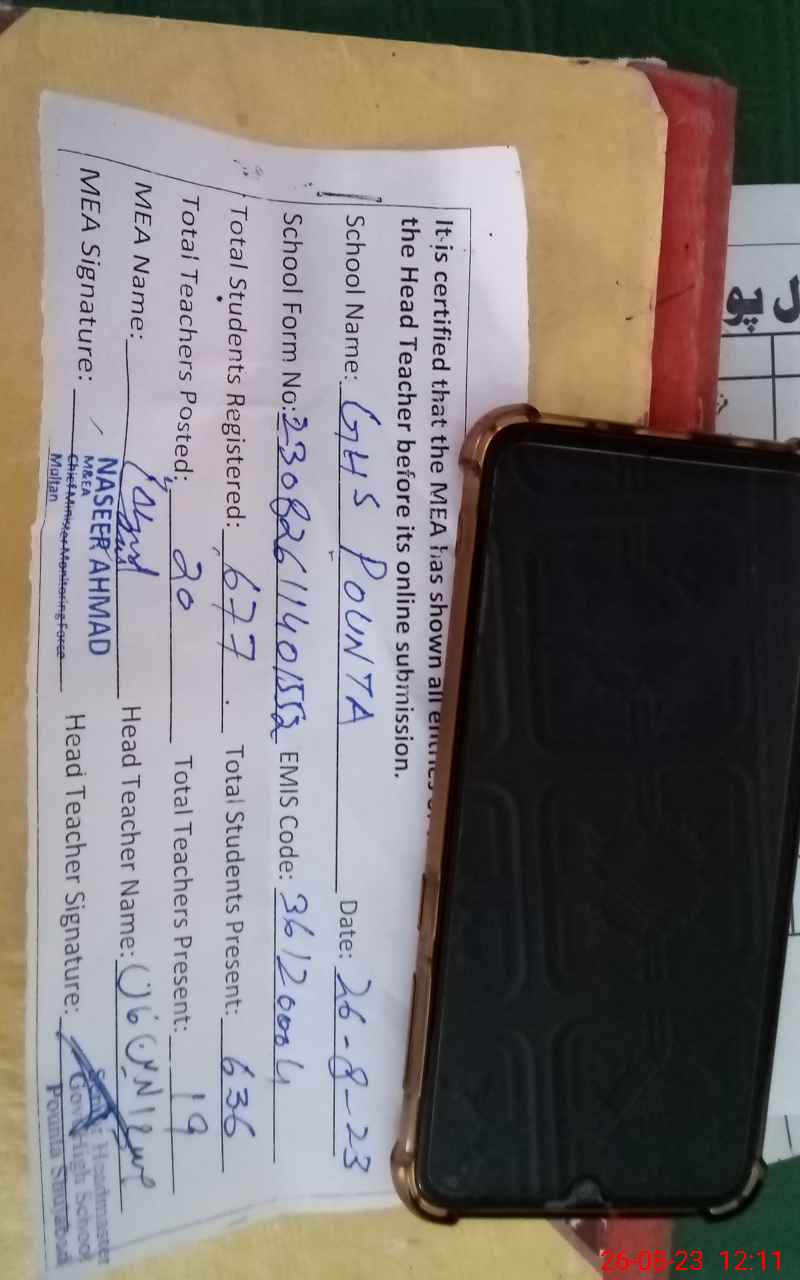 It is certified that the MEA has shown all entries of
the Head Teacher before its online submission.
School Name: GHS POUNTA Date: 26-8-23
School Form No: 23082611401552 EMIS Code: 36120004
Total Students Registered: 677. Total Students Present: 636
Total Teachers Posted: 20 Total Teachers Present: 19
MEA Name: Head Teacher Name:
MEA Signature: Head Teacher Signature:
NASEER AHMAD
M&EA
Chief Minister Monitoring Force
Multan
Headmaster
Govt High School
Pounta Shujabad
26-08-23 12:11